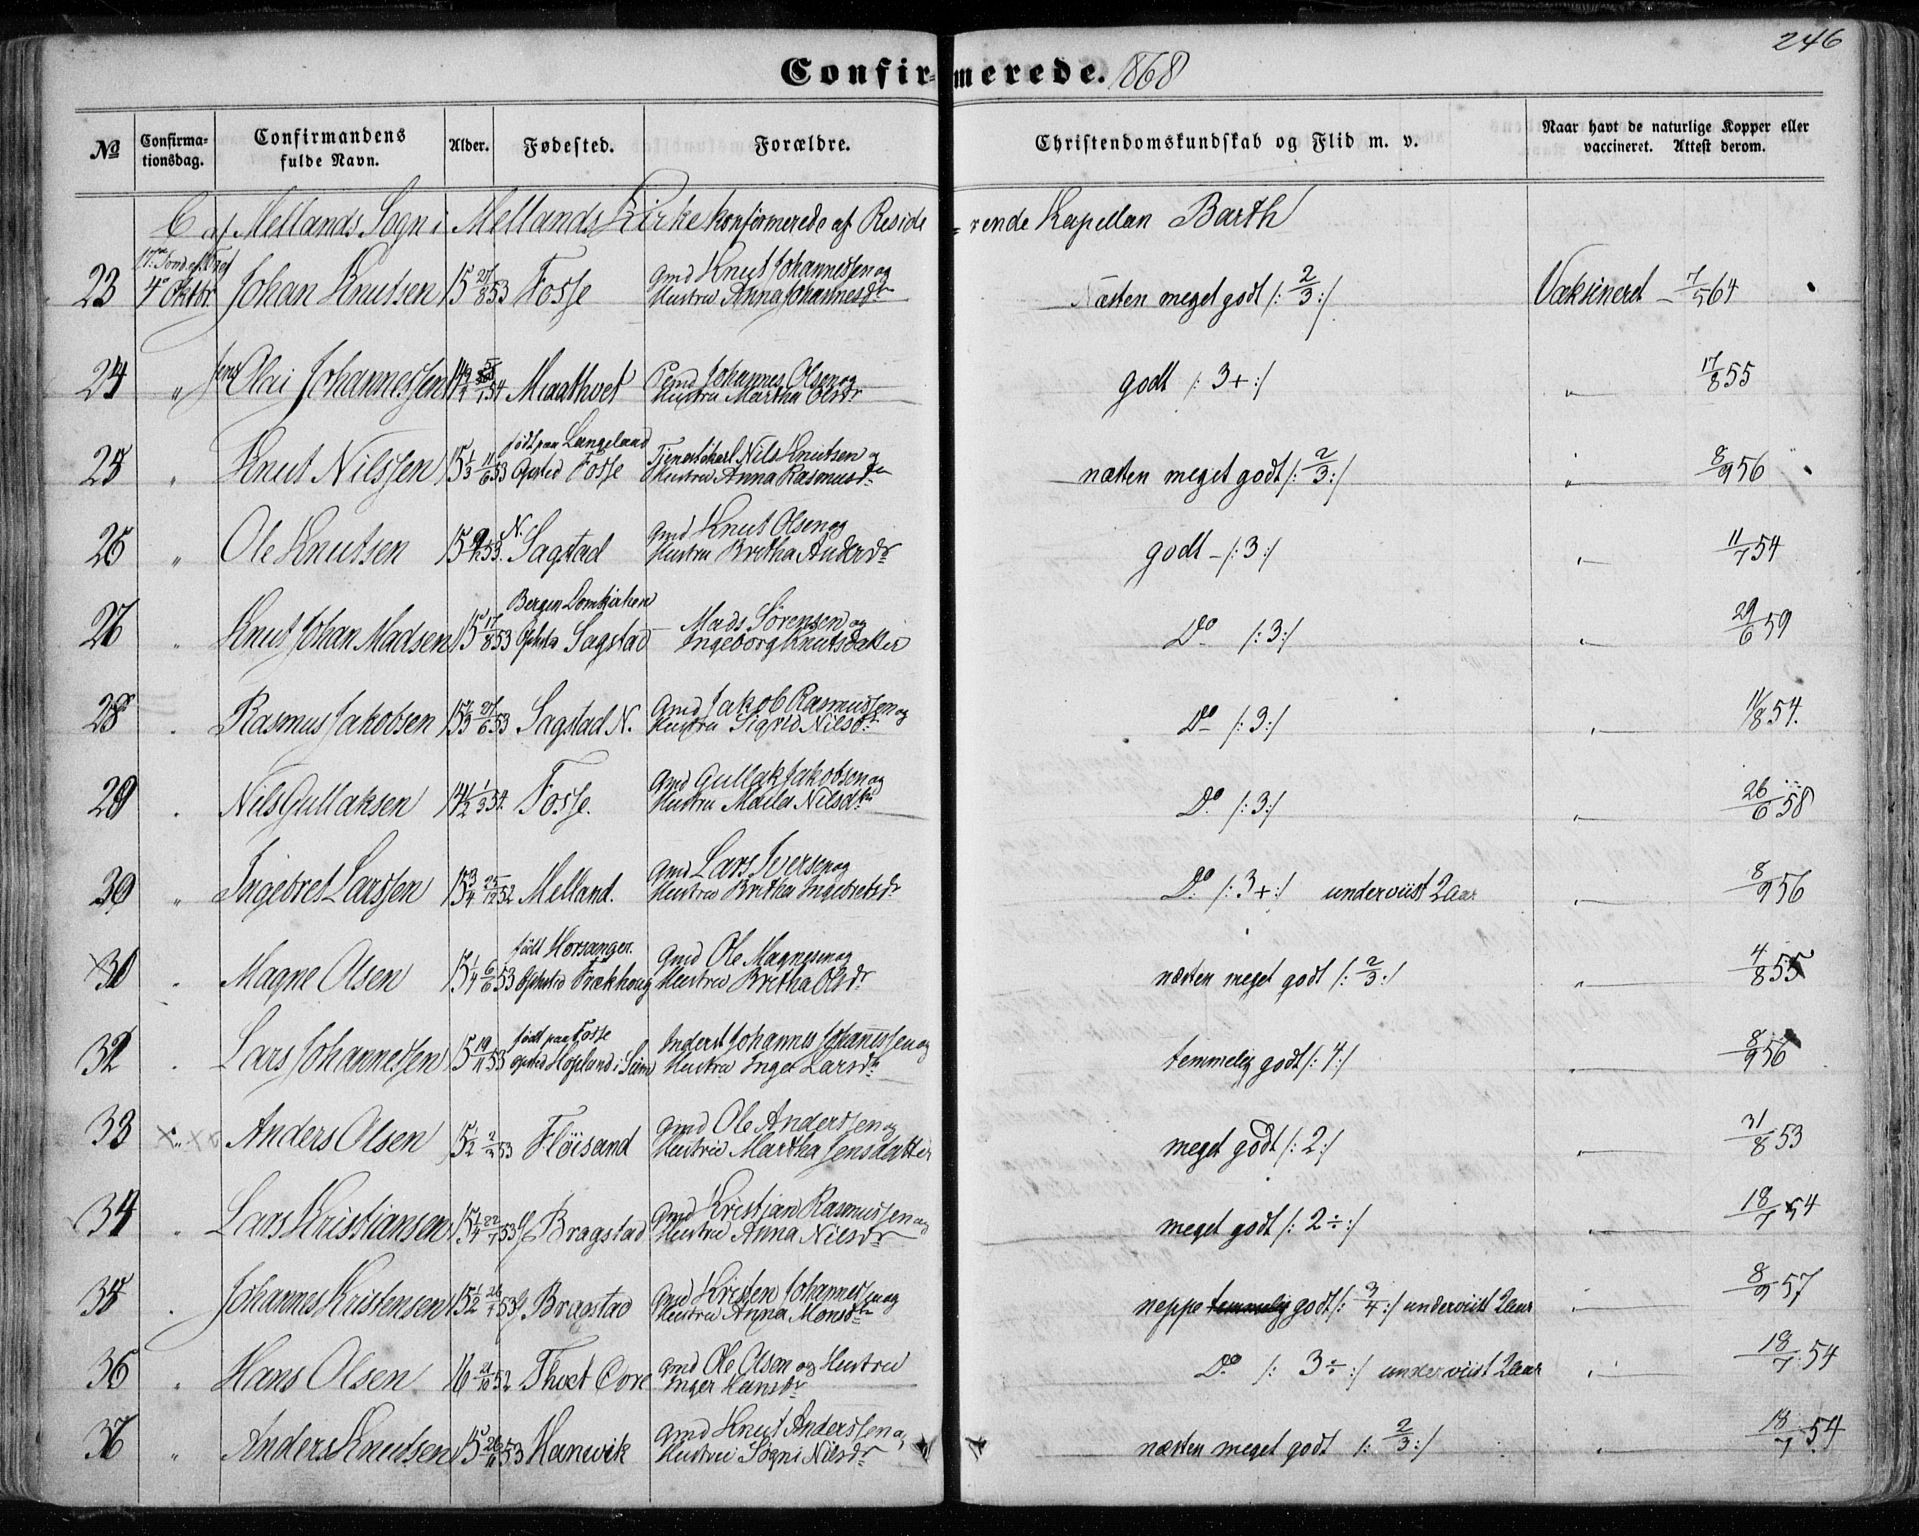 246
Confirmerede. 1868
№
Confirmationsdag.
Confirmandens fulde Navn.
Alder.
Fødested.
Forældre.
Christendomskundskab og Flid m. v.
Naar havt de naturlige Kopper eller vaccineret. Attest derom.
C af Mellands Sogn i Mellands Kirke konfirmerede af Residerende Kapellan Barth
23 4de Oktbr. Johan Knutsen 15 27/8 53 Fosse Gmd Knut Johannessen og Hustru Anna Johannesdr Næsten meget godt /: 2/3 :/ Vaksineret – 7/5 64
24 „ Jens Olai Johannessen 54 Maathvet Johannes Olsen og Hustru Martha Olsdr godt /: 3+ :/ „ 17/8 55
25 „ Knut Nilssen 15 1/3 11/6 53 født paa Langeland Opsted Fosse Tjenestekarl Nils Knutsen og Hustru Anna Rasmusdtr næsten meget godt /: 2/3 :/ „ 8/9 56
26 „ Ole Knutsen 15 53. N. Sagstad Gmd Knut Olsen og Hustru Britha Andersdr godt – /: 3 :/ „ 11/7 54
27 „ Knut Johan Madsen 15 17/8 53 Bergen Domkirken Sagstad Mads Sørensen og Ingeborg Knutsdatter Do /: 3 :/ „ 29/6 59
28 „ Rasmus Jakobsen 27/6 53 Sagstad N. Gmd Jakob Rasmussen og Hustru Sigrid Nilsdtr Do /: 3 :/ „ 11/8 54.
29 „ Nils Gullaksen 14 1/2 1/3 54. Fosse. Gmd Gullak Jakobsen og Hustru Marta Nilsdtr Do /: 3 :/ „ 26/6 58
30 „ Ingebret Larssen 15 3/4 25/12 52 Melland. Gmd Lars Iversen og Hustru Britha Ingebretsdr Do /: 3+ :/ underviist 2 Aar „ 8/9 56
31 „ Magne Olsen 15 1/4 6/6 53 født Hosanger. Gmd Ole Magnesen og Hustru Britha Olsdr næsten meget godt /: 2/3 :/ „ 4/8 55
32 „ Lars Johannessen 19/11 53 født paa Fosse opsted Hopland i Seim Inderst Johannes Johannessen og Hustru Inger Larsdtr temmelig godt /: 4 :/ „ 8/9 56
33 „ Anders Olsen 15 1/2 53 Fløisand Gmd Ole Anderssen og Hustru Martha Jensdatter meget godt /: 2 :/ „ 31/8 53
34 „ Lars Kristiansen 15 1/4 22/7 53 Bragstad Gmd Kristjan Rasmussen og Hustru Anna Nilsdr meget godt /: 2 ÷ :/ „ 18/7 54
35 „ Johannes Kristensen 15 1/2 53 Bragstad Gmd Kristen Johannessen og Hustru Anna Monsdtr neppe temmelig godt /: 3/4 :/ underviist 2 Aar „ 8/9 57
36 „ Hans Olsen 16 21/10 52 Thvet Øvre Gmd Ole Olsen og Hustru Inger Hansdr Do /: 3 ÷ :/ underviist 2 Aar „ 18/7 54
37 „ Anders Knutsen 15 26/11 53 Hanevik Gmd Knut Anderssen og Hustru Sogni Nilsdr næsten meget godt /: 2/3 :/ „ 18/7 54